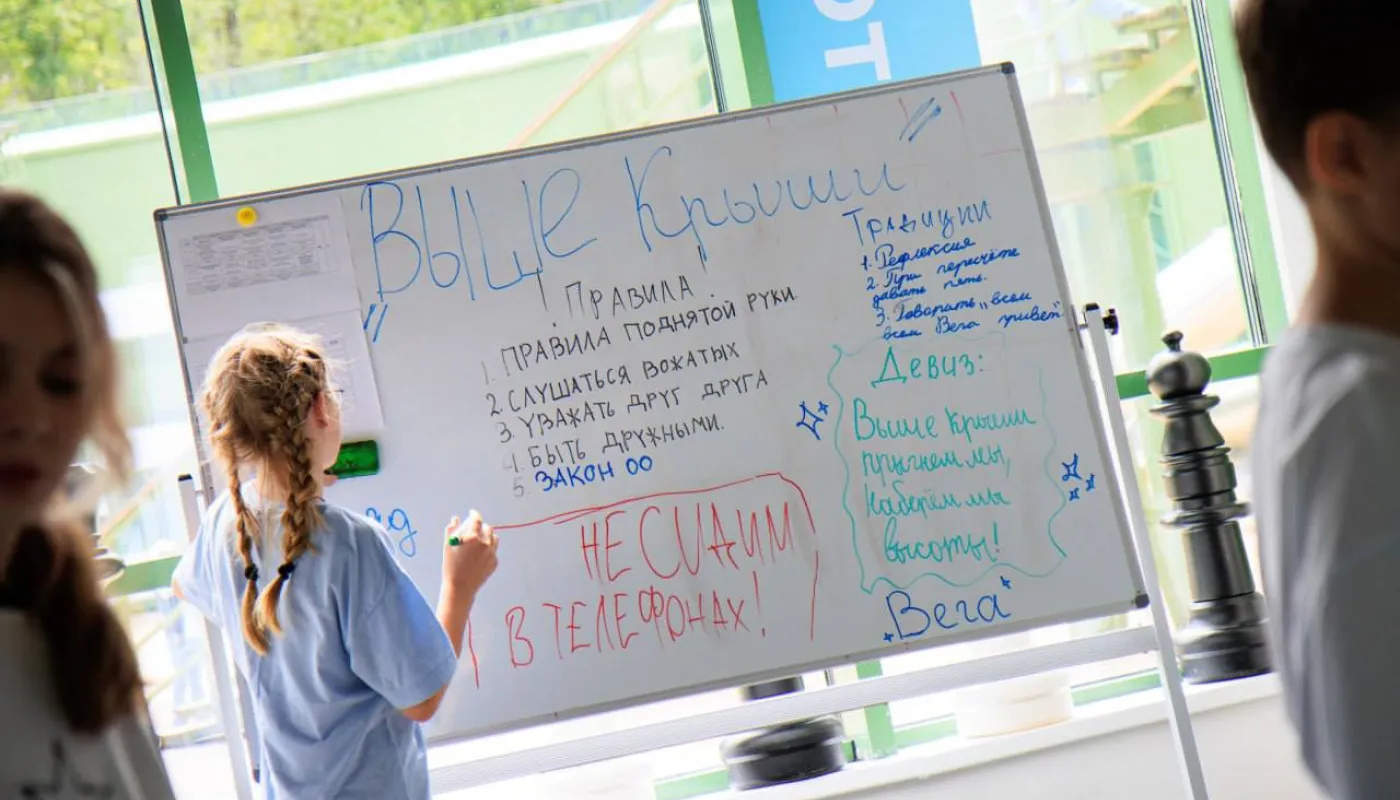 ОТ
Выше Крыши
Правила
1. ПРАВИЛА ПОДНЯТОЙ РУКИ.
2. СЛУШАТЬСЯ ВОЖАТЫХ
3. УВАЖАТЬ ДРУГ ДРУГА
4. БЫТЬ ДРУЖНЫМИ.
5. ЗАКОН ОО
НЕ СИДИМ
В ТЕЛЕФОНАХ!
Традиции
1. Рефлексия
2. При пересчёте
давать пять.
3. Говорить „всем
всем Вега привет"
Девиз:
Выше Крыши
прыгнем мы,
Наберём мы
высоты!
Вега